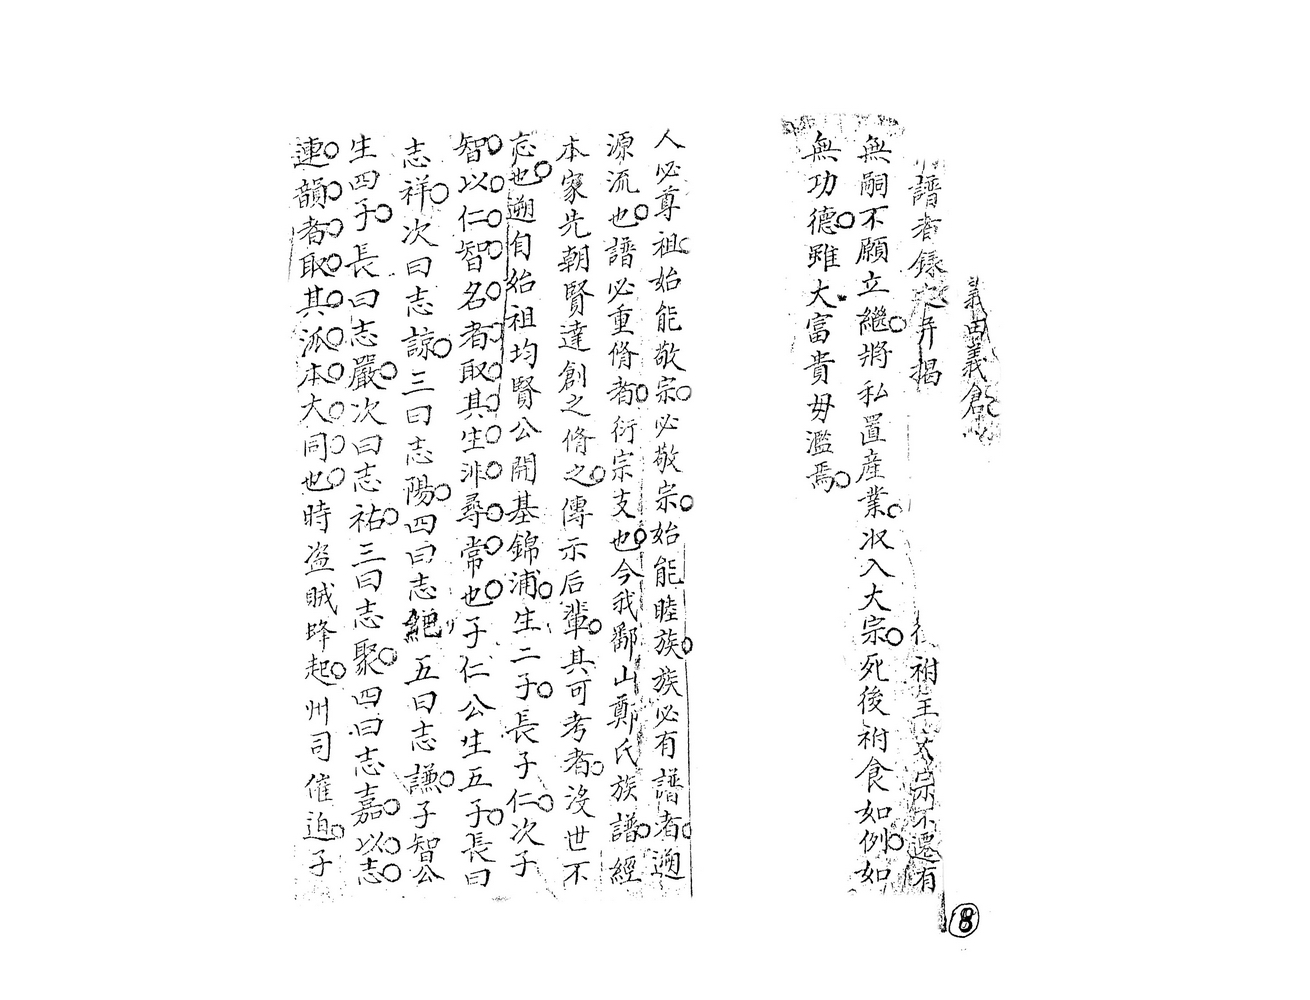 義田義創
譜者錄之并揭 祔主大宗不遷有
無嗣不願立繼將私置產業収入大宗死後祔食如例如
無功德雖大富貴毋濫焉
人必尊祖始能敬宗必敬宗始能睦族族必有譜者遡
源流也譜必重脩者衍宗支也今我鄱山鄭氏族譜經
本家先朝賢達創之脩之傳示后輩其可考者沒世不
忘也遡自始祖均賢公開基錦浦生二子長子仁次子
智以仁智名者取其生非尋常也子仁公生五子長曰
志祥次曰志諒三曰志陽四曰志絕五曰志謙子智公
生四子長曰志嚴次曰志祐三曰志聚四曰志嘉以志
連韻者取其派本大同也時盗賊蜂起州司催迫子
8